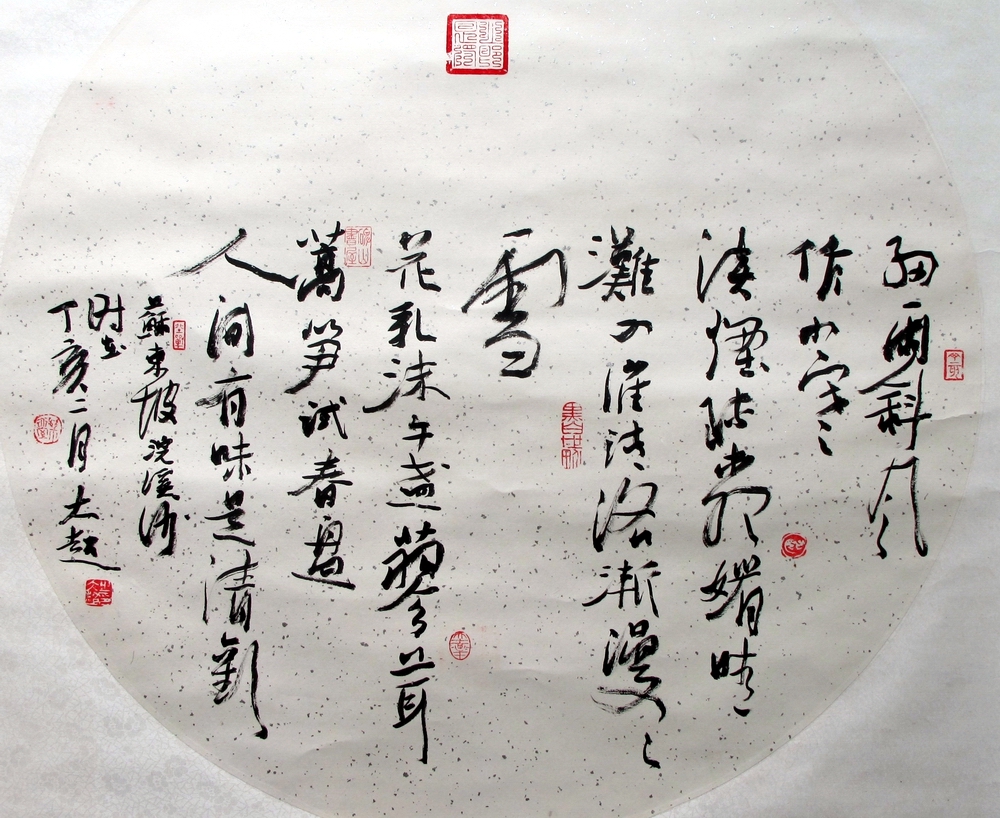 細雨斜風
作小寒
淡煙疏柳媚晴
灘入淮清洛漸漫〻
雪
花乳沫午盞蓼茸
蒿筍試春盤
人間有味是清歡
蘇東坡浣溪沙
時在
丁亥二月大